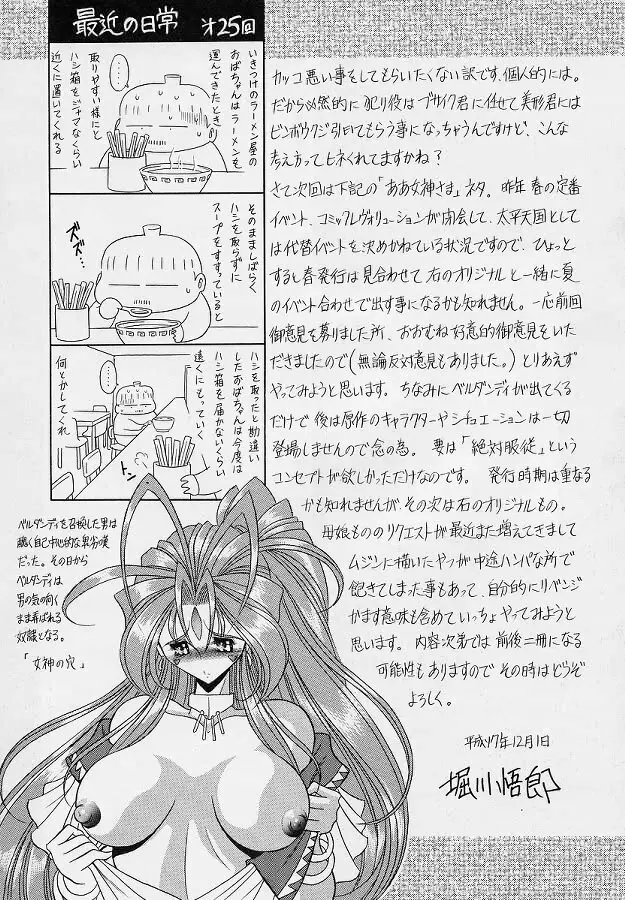 最近の日常 オ25回
いきつけのラーメン屋の
おばちゃんはラーメンを
運んできたとき
取りやすい様にと
ハシ箱をジャマなくらい
近くに置いてくれる
そのまましばらく
ハシを取らずに
スープをすすっていると
ズズ…
ハシを取ったと勘違い
したおばちゃんは今度は
ハシ箱を届かないくらい
遠くにもっていく
何とかしてくれ
トン
カッコ悪い事をしてもらいたくない訳です、個人的には。
だから必然的に犯り役はブサイク君に任せて美形君には
ビンボウクジ引いてもらう事になっちゃうんですけど、こんな
考え方ってヒネくれてますかね?
さて次回は下記の「ああ女神さま」ネタ。昨年春の定番
イベント、コミックレヴォリューションが閉会して、太平天国として
は代替イベントを決めかねている状況ですので、ひょっと
すると春発行は見合わせて右のオリジナルと一緒に夏
のイベント合わせで出す事になるかも知れません。一応前回
御意見を募りました所、おおむね好意的御意見をいた
だきましたので(無論反対意見もありました。)とりあえず
やってみようと思います。ちなみにベルダンディが出てくる
だけで後は原作のキャラクターやシチュエーションは一切
登場しませんので念の為。要は「絶対服従」という
コンセプトが欲しかっただけなのです。 発行時期は重なる
かも知れませんが、その次は右のオリジナルもの。
母娘もののリクエストが最近また増えてきまして
ムジンに描いたやつが中途ハンパな所で
飽きてしまった事もあって、自分的にリベンジ
かます意味も含めていっちょやってみようと
思います。内容次第では前後二冊になる
可能性もありますのでその時はどうぞ
よろしく。
平成17年12月1日
堀川悟郎
ベルダンディを召喚した男は
醜く自己中心的な
だった。その日から
ベルダンディは
男の気の向く
まま弄ばれる
奴隷となる。
「女神の穴」